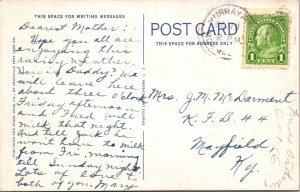 THIS SPACE FOR WRITING MESSAGES
POST CARD
THIS SPACE FOR ADDRESS ONLY
MURRAY
Dearest Mother:
Hope you all are
enjoying this
rainy weather.
How is Daddy? We
will leave here
about three o'clock
Friday afternoon
and Fred will
milk that night.
And tell
won't have to milk
from Fri. morning
till Sunday night.
Lots of love to
both of you. Mary
Mrs. J. M. McDarment
R. F. D. # 4
Mayfield
Ky.
1 CENT 1